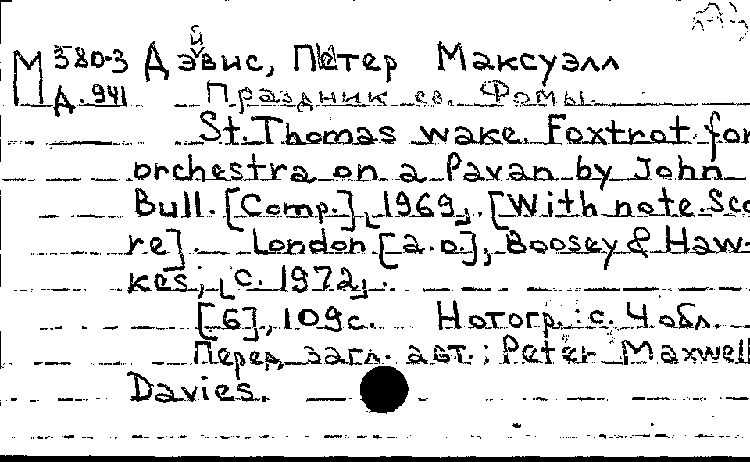 М 580-3 Дэйвис, Петер Максуэлл
Д. 941 Праздник св. Фомы.
St. Thomas wake. Foxtrot for
orchestra on a Pavan by John
Bull. [Comp.], 1969. [With note. Sco
re]. London [a.o.], Boosey & Haw-
kes; [c. 1972].
[6], 109 с. Нотогр.: с. 4 обл.
Перед загл. авт.: Peter Maxwell
Davies.